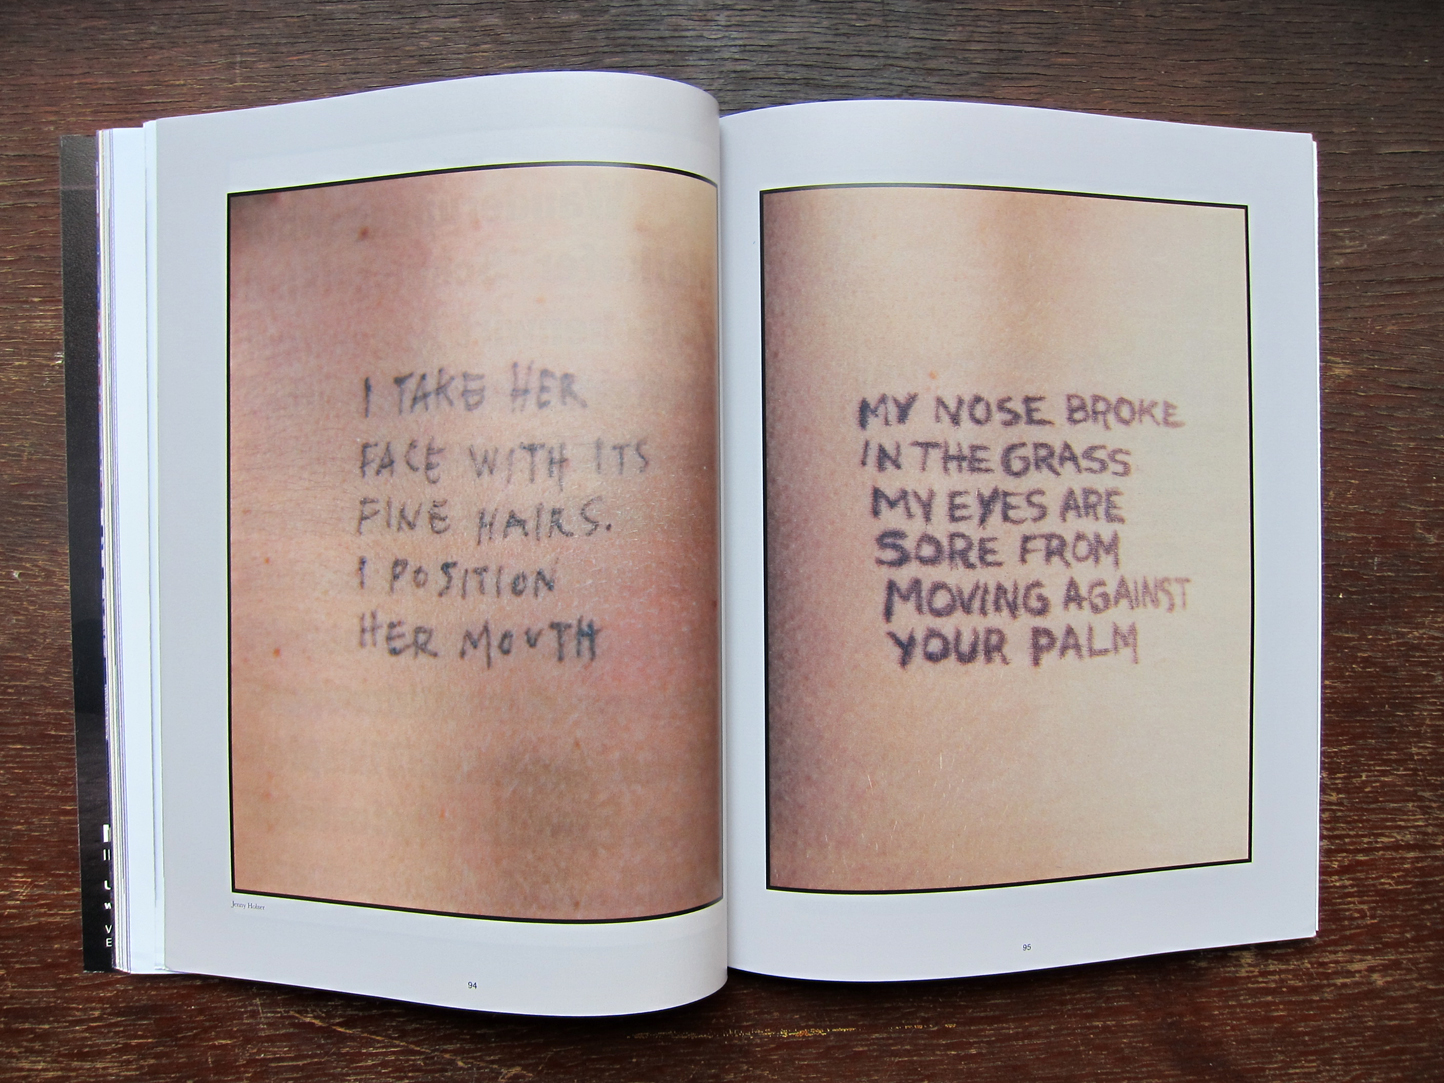 I TAKE HER
FACE WITH ITS
FINE HAIRS.
I POSITION
HER MOUTH
Jenny Holzer
94
MY NOSE BROKE
IN THE GRASS
MY EYES ARE
SORE FROM
MOVING AGAINST
YOUR PALM
95